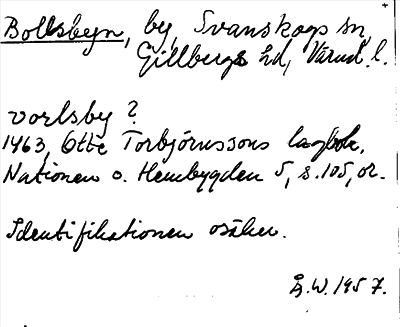 Bollsbyn, by, Svanskogs sn,
Gillbergs hd, Värml. l.
vorlsby ?
1463, Otte Torbjörnssons lagbok,
Nationen o. Hembygden 5, s. 105, or.
Identifikationen osäker.
Å.W. 1957.